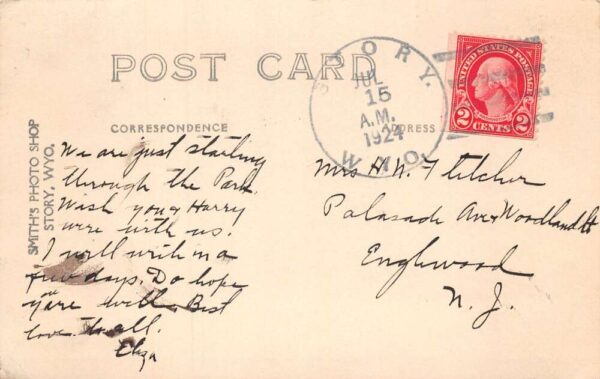 POST CARD
CORRESPONDENCE
ADDRESS
STORY.
JUL
15
A.M.
1924
WYO.
UNITED STATES POSTAGE
2 CENTS 2
SMITH'S PHOTO SHOP
STORY, WYO.
We are just starting
through the Park.
Wish you & Harry
were with us!
I will write in a
few days. Do hope
you are well. Best
love to all.
Eliza
Mrs H. N. Fletcher
Palasade Ave & Woodland St
Englewood
N. J.